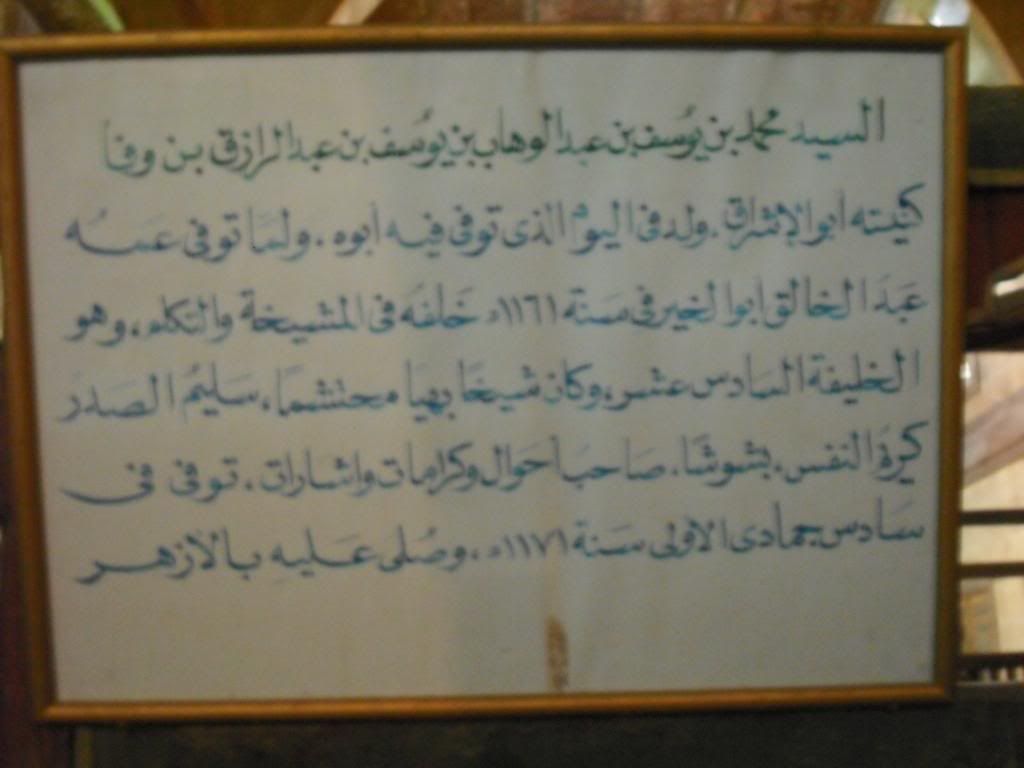 السيد محمد بن يوُسف بن عبد الوهاب بن يوُسف بن عبد الرازق بن وفا
كنيته أبو الإشراق . ولد فى اليوم الذى توفى فيه أبوه . ولما توفى عمه
عبد الخالق ابو الخير فى سنة ١١٦١هـ خلفه فى المشيخة والتكلم ، وهو
الخليفة السادس عشر ، وكان شيخا بهيا محتشما ، سليم الصدر
كريم النفس ، بشوشا . صاحب احوال وكرامات واشارات . توفى فى
سادس جمادى الاولى سنة ١١٧١هـ ، وصُلى عليه بالأزهر